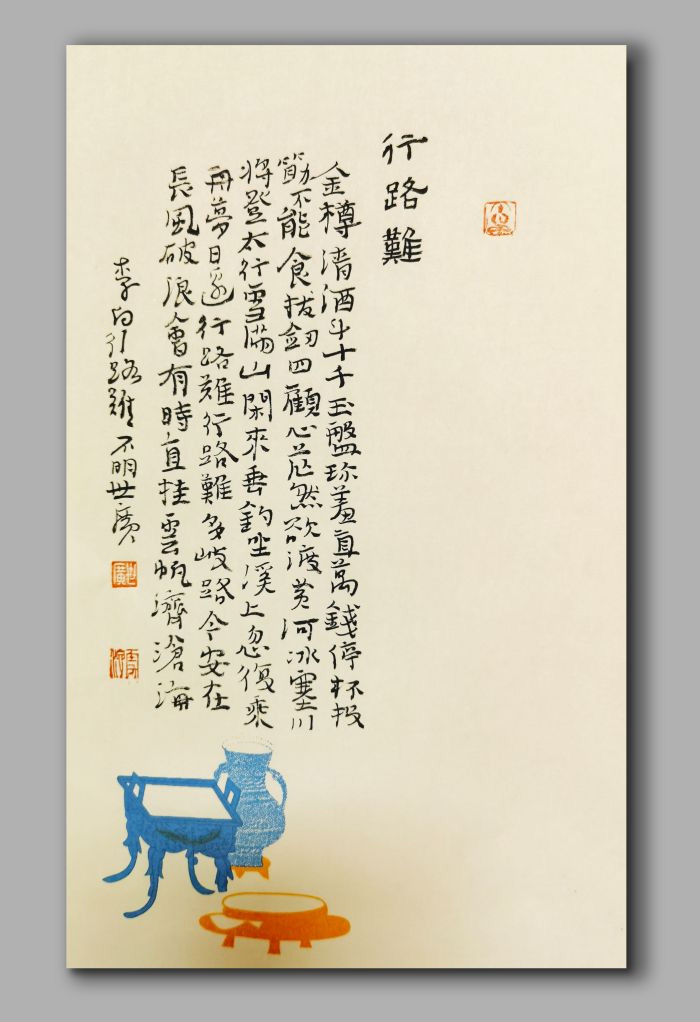 行路難
金樽清酒斗十千玉盤珎羞直萬錢停杯投
筯不能食拔劒四顧心茫然欲渡黄河冰塞川
將登太行雪滿山閑來垂釣坐溪上忽復乘
舟夢日邊行路難行路難多歧路今安在
長風破浪會有時直挂雲帆濟滄海
李白行路難不明世廣
世廣